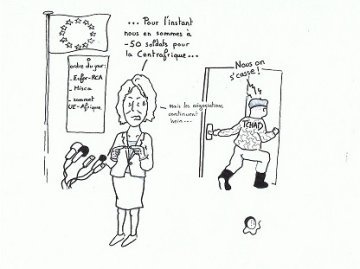 ... Pour l'instant
nous en sommes à
-50 soldats pour
la Centrafrique...
Nous on
s'casse !
ordre du jour:
- Eufor-RCA
- Misca
- sommet
UE-Afrique
- mais les négociations
continuent
hein...
TCHAD